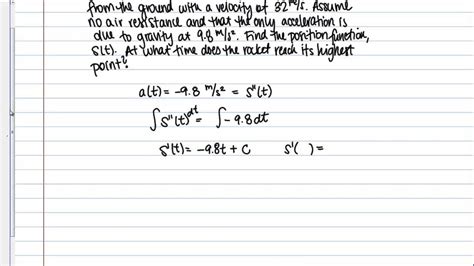 from the ground with a velocity of 32 m/s. Assume
no air resistance and that the only acceleration is
due to gravity at 9.8 m/s². Find the position function,
s(t). At what time does the rocket reach its highest
point?
a(t) = -9.8 m/s² = s"(t)
∫ s"(t) dt = ∫ -9.8 dt
s'(t) = -9.8t + C s'( ) =